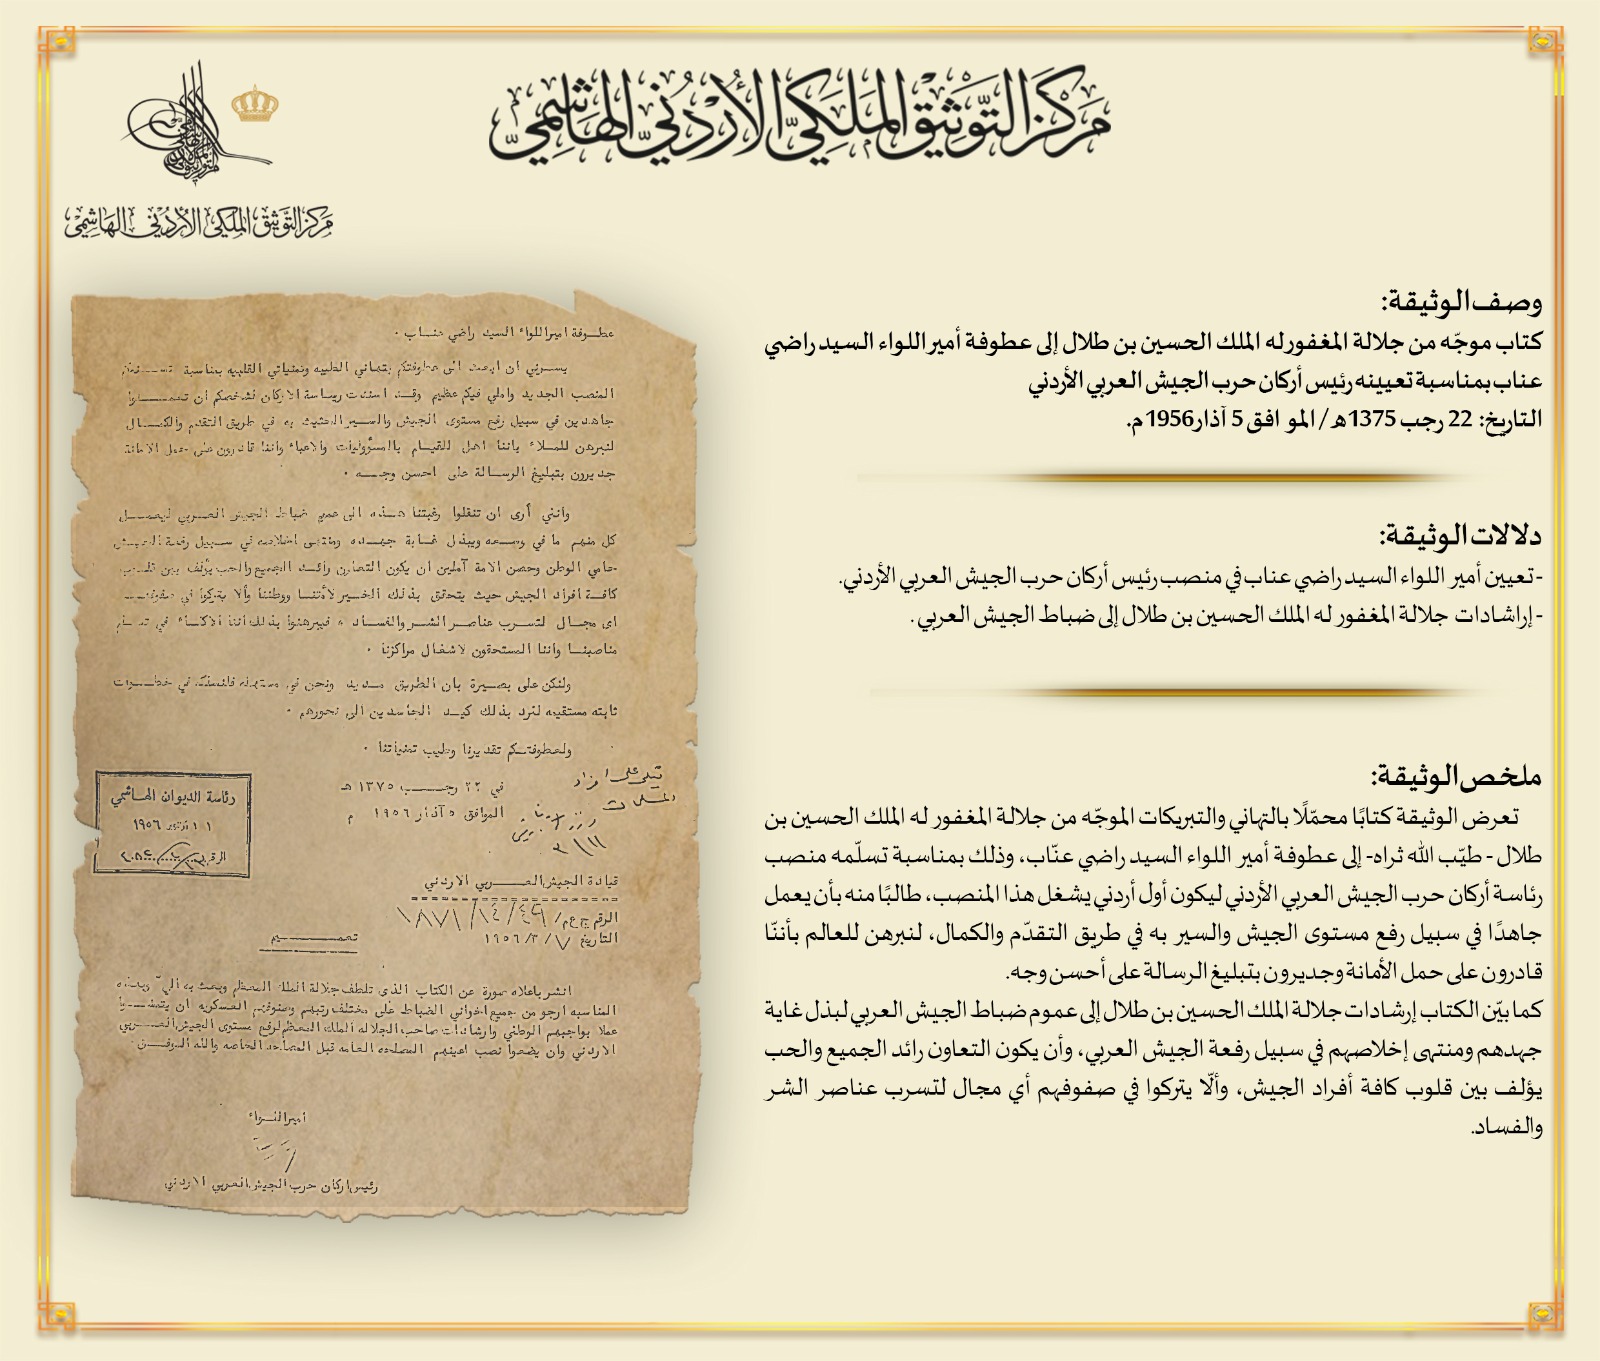 مركز التّوثيق الملكي الأردني الهاشمي
مركز التوثيق الملكي الأردني الهاشمي
وصف الوثيقة:
كتاب موجّه من جلالة المغفورله الملك الحسين بن طلال إلى عطوفة أمير اللواء السيد راضي
عناب بمناسبة تعيينه رئيس أركان حرب الجيش العربي الأردني
التاريخ: 22 رجب 1375هـ / الموافق 5 آذار 1956م.
دلالات الوثيقة:
- تعيين أمير اللواء السيد راضي عناب في منصب رئيس أركان حرب الجيش العربي الأردني.
- إراشادات جلالة المغفور له الملك الحسين بن طلال إلى ضباط الجيش العربي.
ملخص الوثيقة:
تعرض الوثيقة كتابًا محمّلًا بالتهاني والتبريكات الموجّه من جلالة المغفور له الملك الحسين بن
طلال - طيّب الله ثراه- إلى عطوفة أمير اللواء السيد راضي عنّاب، وذلك بمناسبة تسلّمه منصب
رئاسة أركان حرب الجيش العربي الأردني ليكون أول أردني يشغل هذا المنصب، طالبًا منه بأن يعمل
جاهدًا في سبيل رفع مستوى الجيش والسير به في طريق التقدّم والكمال، لنبرهن للعالم بأننّا
قادرون على حمل الأمانة وجديرون بتبليغ الرسالة على أحسن وجه.
كما بيّن الكتاب إرشادات جلالة الملك الحسين بن طلال إلى عموم ضباط الجيش العربي لبذل غاية
جهدهم ومنتهى إخلاصهم في سبيل رفعة الجيش العربي، وأن يكون التعاون رائد الجميع والحب
يؤلف بين قلوب كافة أفراد الجيش، وألّا يتركوا في صفوفهم أي مجال لتسرب عناصر الشر
والفساد.
عطوفة امير اللواء السيد راضي عناب ٠
يسرني ان ابعث الى عطوفتكم بتهاني القلبيه وتمنياتي القلبيه بمناسبة
المنصب الجديد واملي فيكم عظيم وقد اسندت رياسة الاركان لشخصكم ان تعملوا
جاهدين في سبيل رفع مستوى الجيش والسير الحثيث به في طريق التقدم والكمال
لنبرهن للملاء باننا اهل للقيام بالمسؤوليات والاعباء واننا قادرون على حمل الامانة
جديرون بتبليغ الرسالة على احسن وجه ٠
وانني أرى ان تنقلوا رغبتنا هذه الى عموم ضباط الجيش العربي ليعمل
كل منهم ما في وسعه ويبذل غاية جهده ومنتهى اخلاصه في سبيل رفعة الجيش
حامي الوطن وحصن الامة آملين ان يكون التعاون رائد الجميع والحب يؤلف بين قلوب
كافة افراد الجيش حيث يتحقق بذلك الخير لأمتنا ووطننا وألا يتركوا في صفوفهم
اى مجال لتسرب عناصر الشر والفساد ٠ فيبرهنوا بذلك أننا الاكفاء في
مناصبنا واننا المستحقون لاشغال مراكزنا ٠
ولنكن على بصيرة بان الطريق مديد ونحن في مستهله فلنسلك في خطوات
ثابته مستقيمه لنرد بذلك كيد الحاسدين الى نحورهم ٠
ولعطوفتكم تقديرنا وطيب تمنياتنا ٠
في ٢٢ رجب ١٣٧٥ هـ
الموافق ٥ آذار ١٩٥٦ م
رئاسة الديوان الهاشمي
١٩٥٦
الرقم
قيادة الجيش العربي الاردني
الرقم
التاريخ ٧/ ٣/ ١٩٥٦
تعميم
انشر باعلاه صورة عن الكتاب الذى تلطف جلالة الملك المعظم وبعث به الي وبهذه
المناسبه ارجو من جميع اخواني الضباط على مختلف رتبهم وصنوفهم العسكريه ان
عملا بواجبهم الوطني وارشادات صاحب الجلاله الملك المعظم لرفع مستوى الجيش العربي
الاردني وان يضعوا نصب اعينهم المصلحه العامه قبل المصلحه الخاصه والله الموفق
امير اللواء
رئيس اركان حرب الجيش العربي الاردني